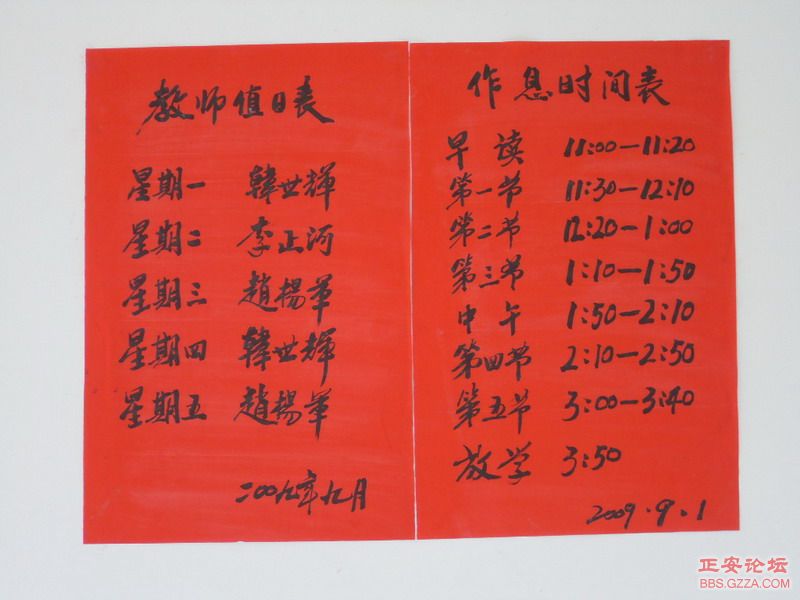 教师值日表
星期一 韓世輝
星期二 李正河
星期三 趙楊華
星期四 韓世輝
星期五 趙楊華
二00九年九月
作息时间表
早读 11:00—11:20
第一节 11:30—12:10
第二节 12:20—1:00
第三节 1:10—1:50
中午 1:50—2:10
第四节 2:10—2:50
第五节 3:00—3:40
放学 3:50
2009.9.1
正安论坛
BBS.GZZA.COM